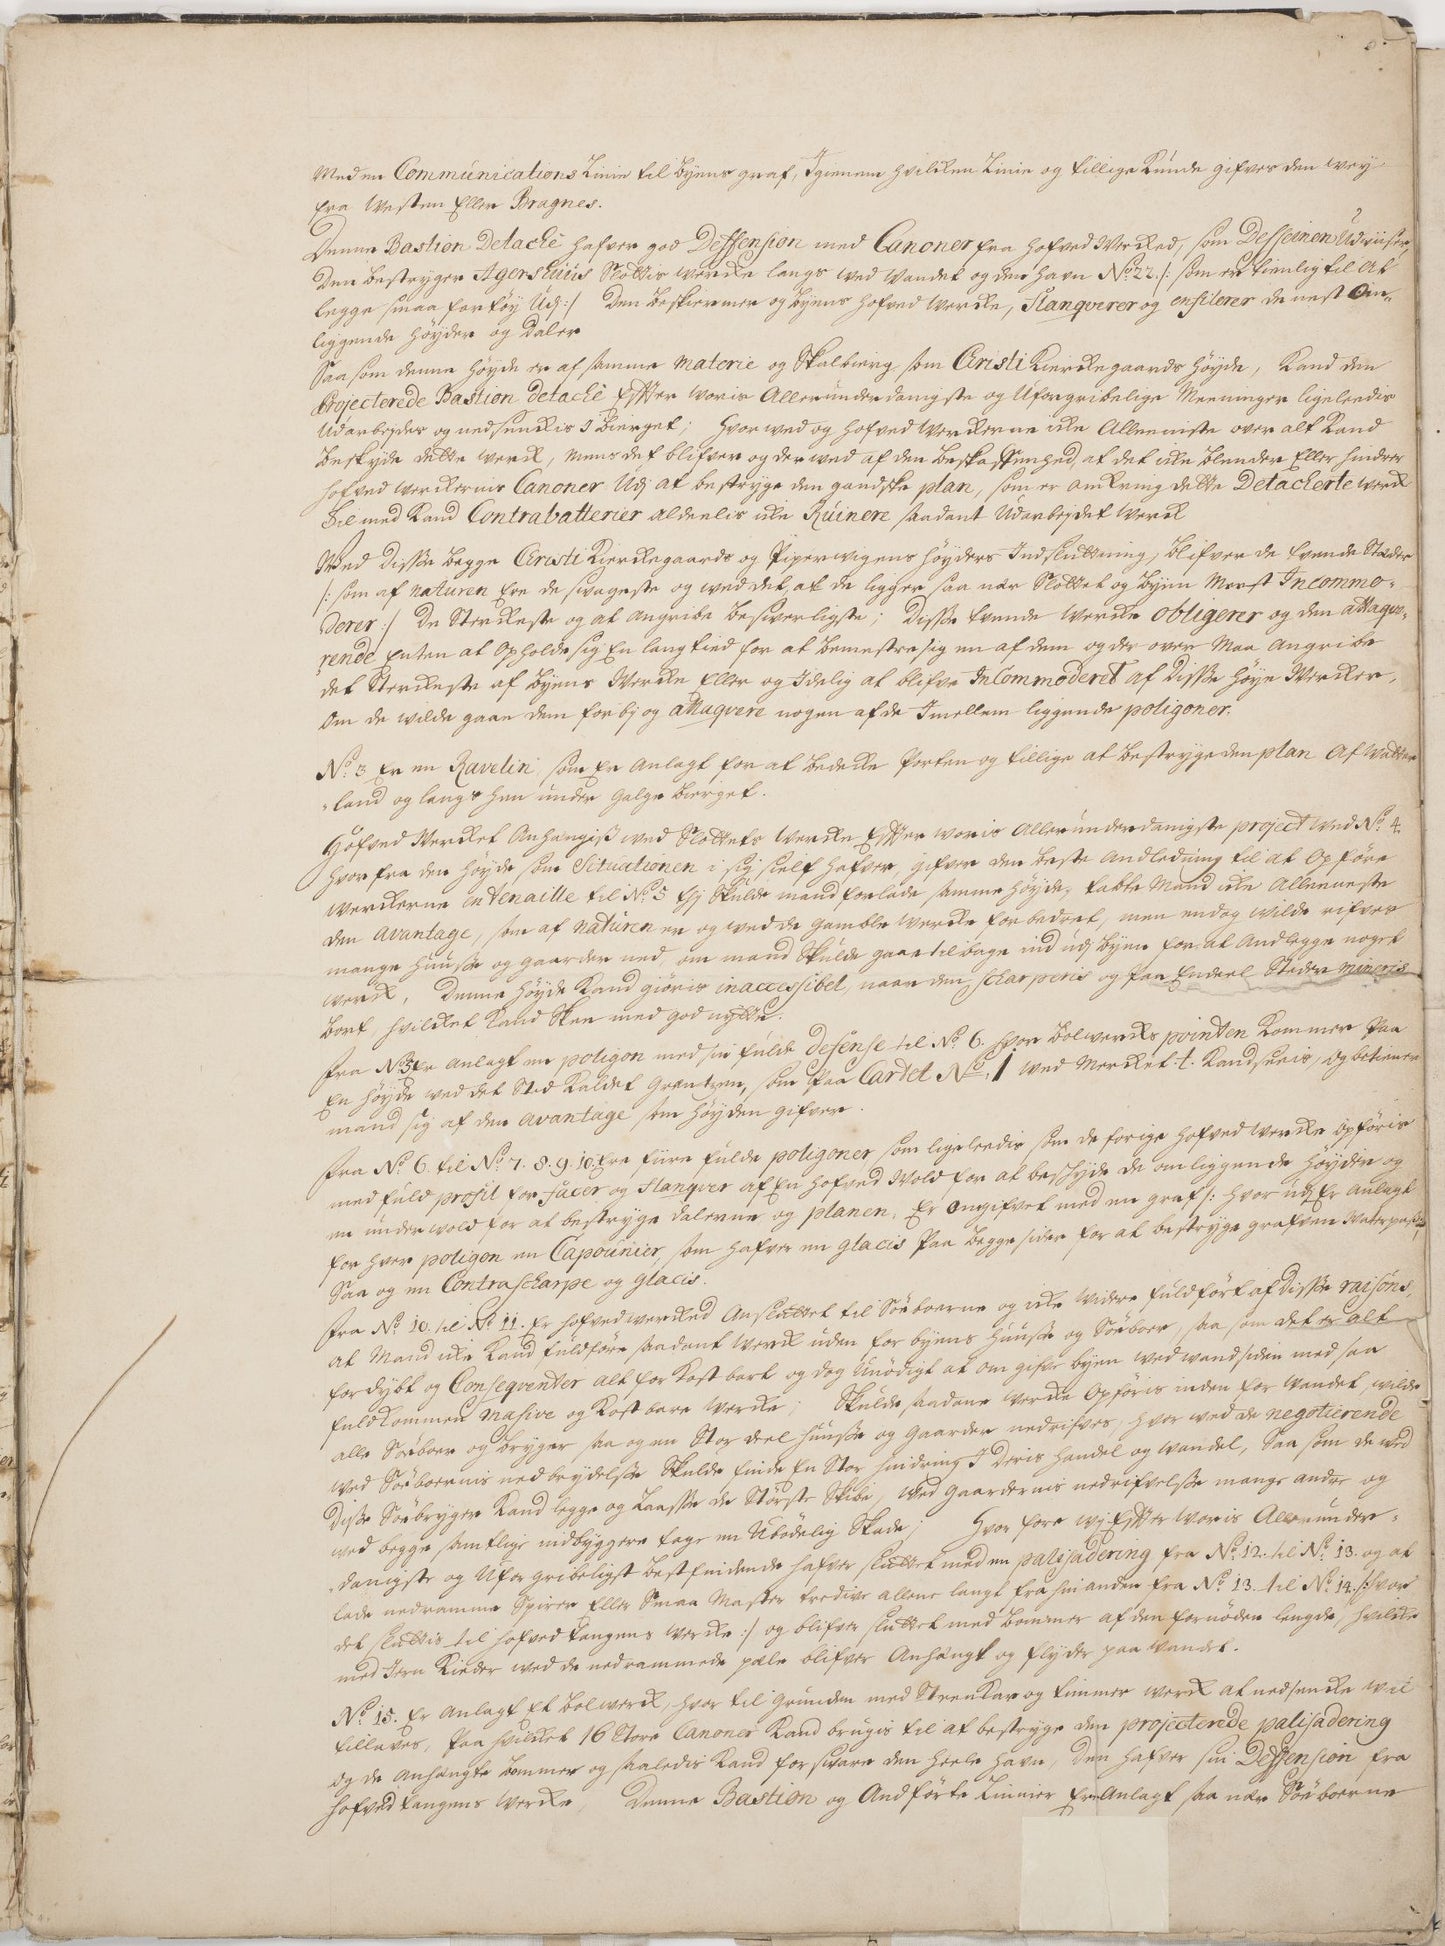 Med en Communications Linie til byens graf, Igienem hvilchen Linie og tillige Kunde gifves den vey
fra Westen Eller Bragnes.
Denne Bastion Detaché hafver god Deffension med Canoner fra Hofved Wercked, som Desseinen Udviiser,
Den bestryger Agershuus Slottis wercke langs ved Vandet og den havn No. 22. /: som er tienlig til at
legge smaa fartøy Udj :/ Den beskiermer og byens hofved wercke, flanqverer og enfilerer de nest Om-
liggende høyder og daler
Saa som denne høyde er af samme materie og Skalbierg som Christi Kierckegaards høyde, Kand den
Projecterede Bastion detaché Effter woris Allerunderdanigste og Uforgribelige Meeninger ligeleedis
Udarbeydes og nedsenckis i bierget; Hvor ved og hofved Werckerne icke Alleeniste over alt Kand
beskyde dette werck, mens det blifver og der ved af den beskaffenhed, at det icke blender Eller hindrer
hofved werckernis Canoner Udj at bestryge den gandske plan, som er omkring dette Detacherte werck
Til med Kand Contrabatterier aldeelis icke Ruinere saadant Udarbeydet Werck
Med disse begge Christi Kierckegaards og Piperwigens høyders Indsluttning, blifver de tvende Steder
/: som af naturen Ere de svageste og ved det, at de ligger saa nær Slottet og byen Meest Incommo-
derer :/ De Sterckeste og at angribe besverligste; Disse tvende wercke obligerer og den attaqve-
rende Enten at Opholde sig En lang tied for at bemestre sig en af dem og der over Maa Angribe
det Sterckeste af byens Wercke Eller og Idelig at blifve InCommoderet af disse høye Wercker,
Om de wilde gaae dem forbj og attaqvere nogen af de Imellem liggende poligoner.
No. 3 Er en Ravelin, som Er Anlagt for at bedecke Porten og tillige at bestryge den plan Af Vatter-
land og langs hen under Galge bierget.
Hofved Wercket Anhengis ved Slottets wercke Effter woris Allerunderdanigste project ved No. 4.
Hvor fra den høyde som Situationen i sig sielf hafver, gifver den beste Andledning til at Opføre
Werckerne en tenaille til No. 5 Thj Skulde mand forlade samme høyde, tabte Mand icke Alleeneste
den avantage, som af naturen er og ved de gamble wercke forbedret, men endog wilde rifves
mange huuse og gaarder ned, om mand Skulde gaae tilbage ind udj byen for at Andlegge noget
werck, Denne høyde Kand giøris inaccessibel, naar den scharperis og paa Endeel Steder mineris
bort, hvilcket Kand Skee med god nytte.
Fra No. 5 er anlagt en poligon med sin fulde defense til No. 6. hvor bolwercks pointen Kommer paa
En høyde ved det Sted Kaldet Grentzen, som paa Cartet No. 1 ved Mercket t. Kand seeis, og betiener
mand sig af den avantage som høyden gifver.
Fra No. 6. til No. 7. 8. 9. 10. Ere fiire fulde poligoner som ligeleedis som de forige hofved wercke opføris
med fuld profil for facer og flanqver af En hofved Wold for at beskyde de omliggende høyder og
en under wold for at bestryge dalerne og planen, Er Omgifvet med en graf /: hvor udj Er anlagt
for hver poligon en Capounier, som hafver en glacis paa begge sider for at bestryge grafven Waterpas :/
Saa og en Contrascharpe og glacis.
Fra No. 10. til No. 11. Er hofved wercked Ansluttet til Søeboerne og icke videre fuldført af disse raisons,
at Mand icke Kand fuldføre saadant werck uden for byens huuse og Søeboer, saa som det er alt
for dybt og Conseqventer alt for Kostbart og dog Unødigt at omgifve byen ved wandsiden med saa
fuldkommen masive og Kostbare wercke; Skulde saadane wercke Opføris inden for Vandet, wilde
alle Søeboer og brygger saa og en Stor deel huuse og gaarder nedrifves, hvor ved de negotierende
ved Søeboernis nedbrydelsse Skulde finde En Stor hindring I deris handel og wandel, saa som de ved
disse Søebrygger Kand legge og laasse de Største Skibe, Ved gaardernis nedrifvelsse mange andre og
ved begge samptlige indbyggere tage en Ubodelig Skade; Hvor fore wj Effter woris Allerunder-
danigste og Uforgribeligst befindende hafver sluttet med en palisadering fra No. 12. til No. 13. og at
lade nedramme Spirer Eller Smaa Master tredive allene langt fra hin anden fra No. 13. til No. 14. /: hvor
det sluttis til hofved tangens wercke :/ og blifver sluttet med bommer af den fornøden lengde, hvilcke
med Jern Kieder ved de nedrammede pæle blifver Anhengt og flyder paa Vandet.
No. 15. Er anlagt Et bolwerck, hvor til grunden med SteenKar og timmer werck at nedsencke vil
tillaves, paa hvilcket 16 store Canoner Kand brugis til at bestryge den projecterede palisadering
og de anhengte bommer og saaledis Kand forsvare den heele havn, den hafver sin Deffension fra
hofved tangens wercke, Denne Bastion og Andførte Linnier Ere Anlagt saa nær Søeboerne